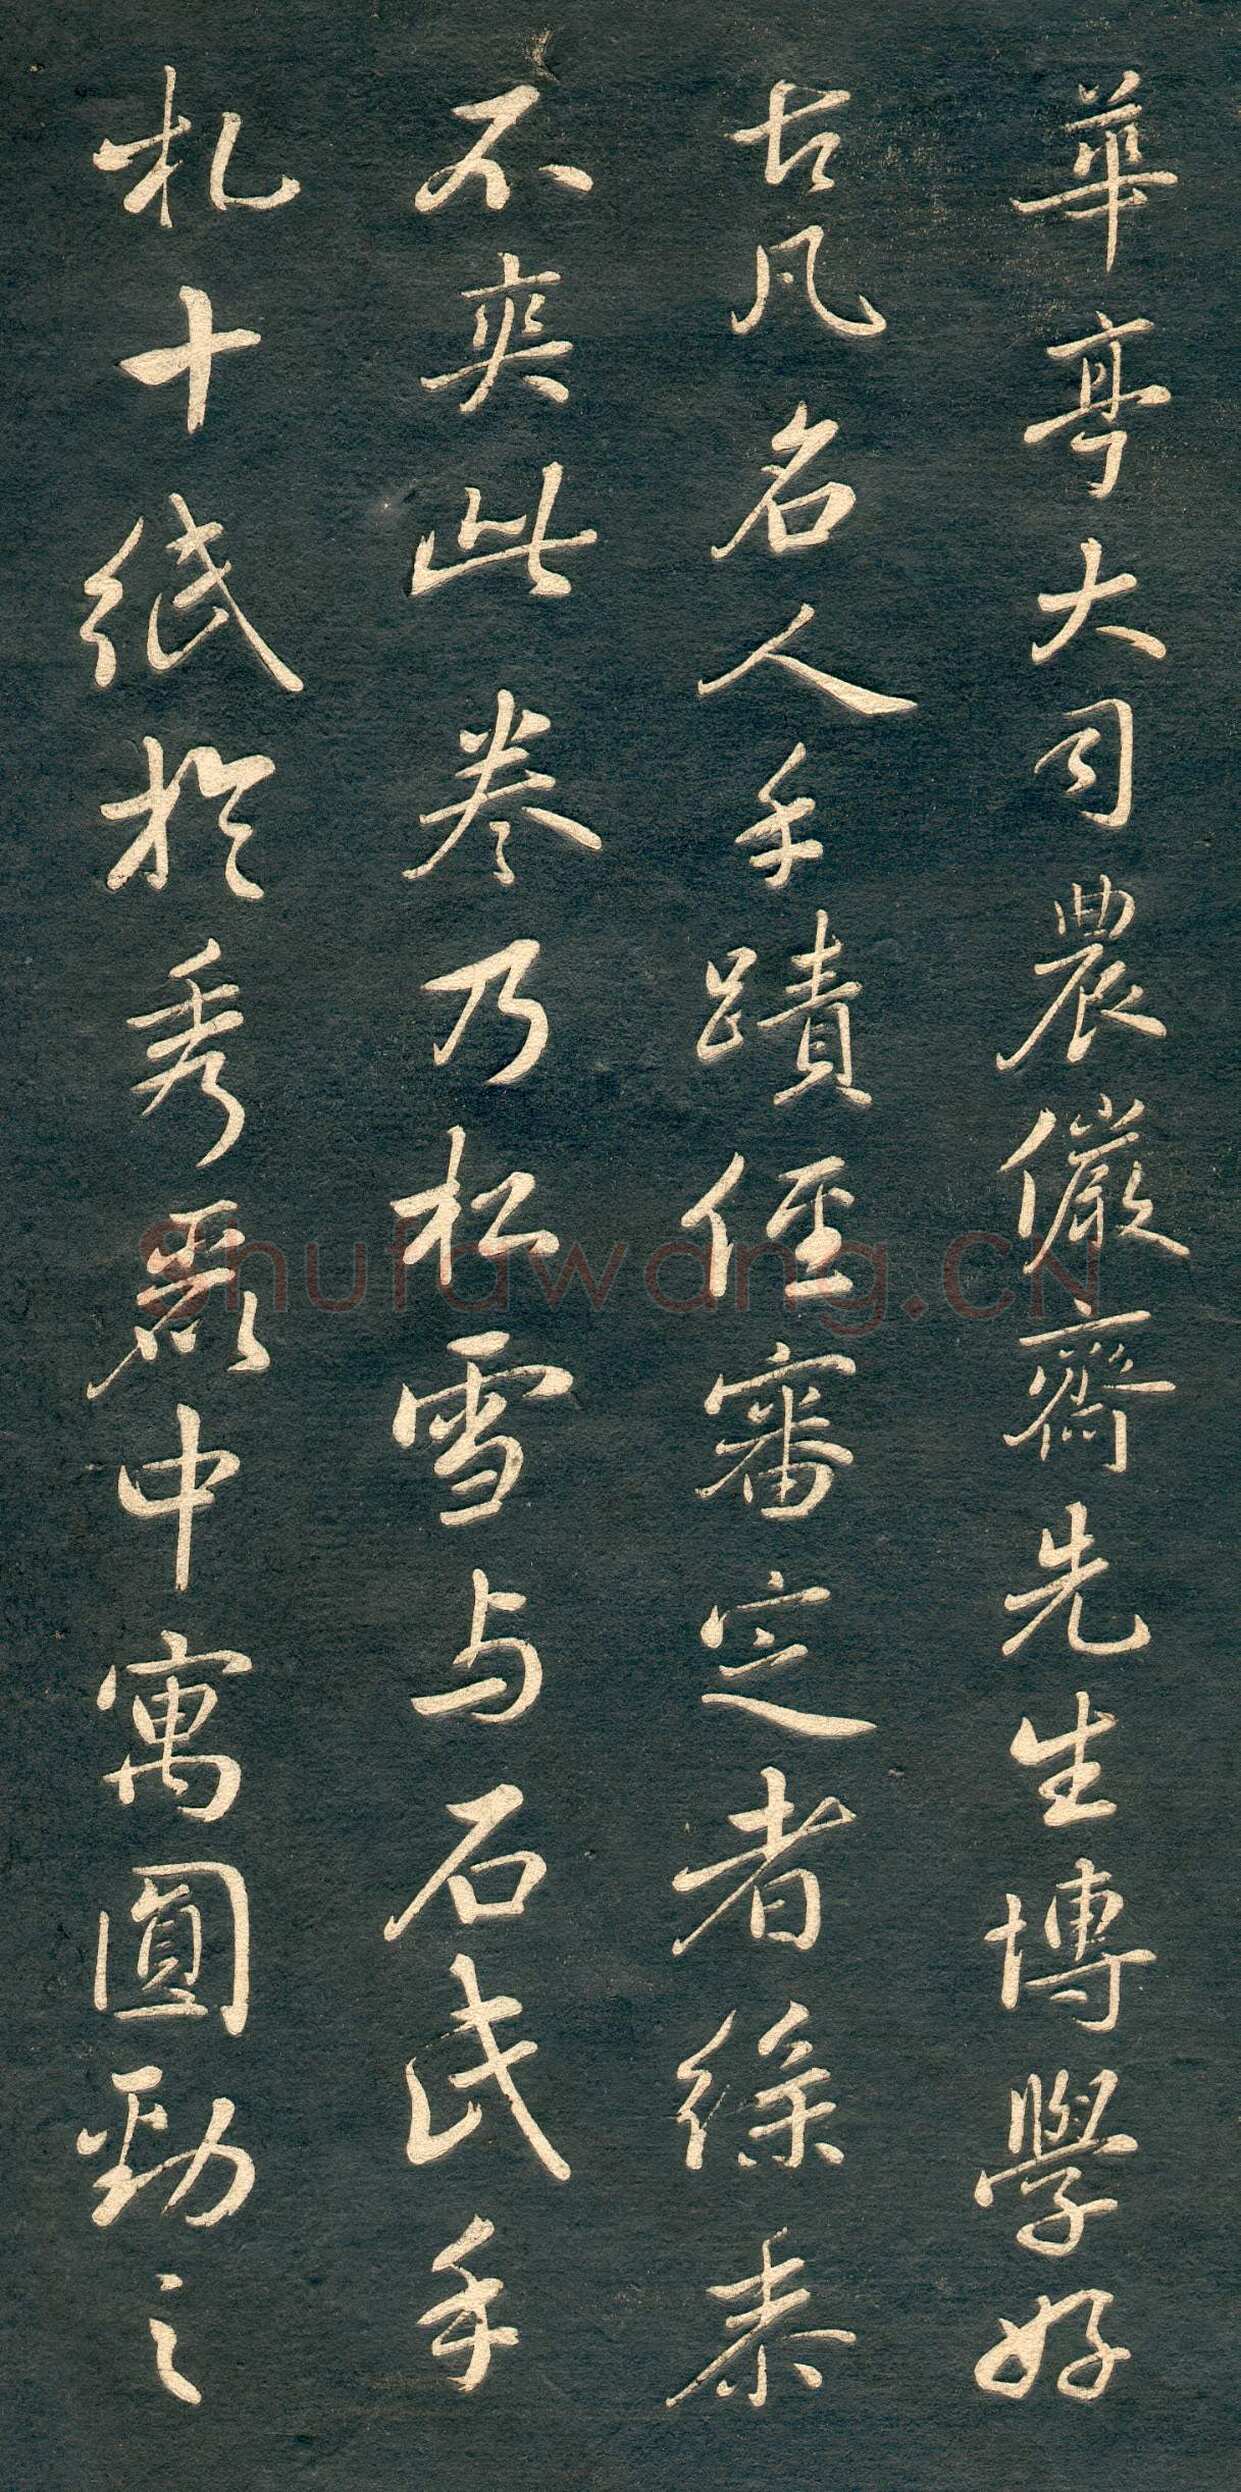 華亭大司農儼齋先生博學好
古凡名人手蹟經審定者絫黍
不爽此卷乃松雪与石民手
札十紙於秀麗中寓圓勁之
shufawang.cn